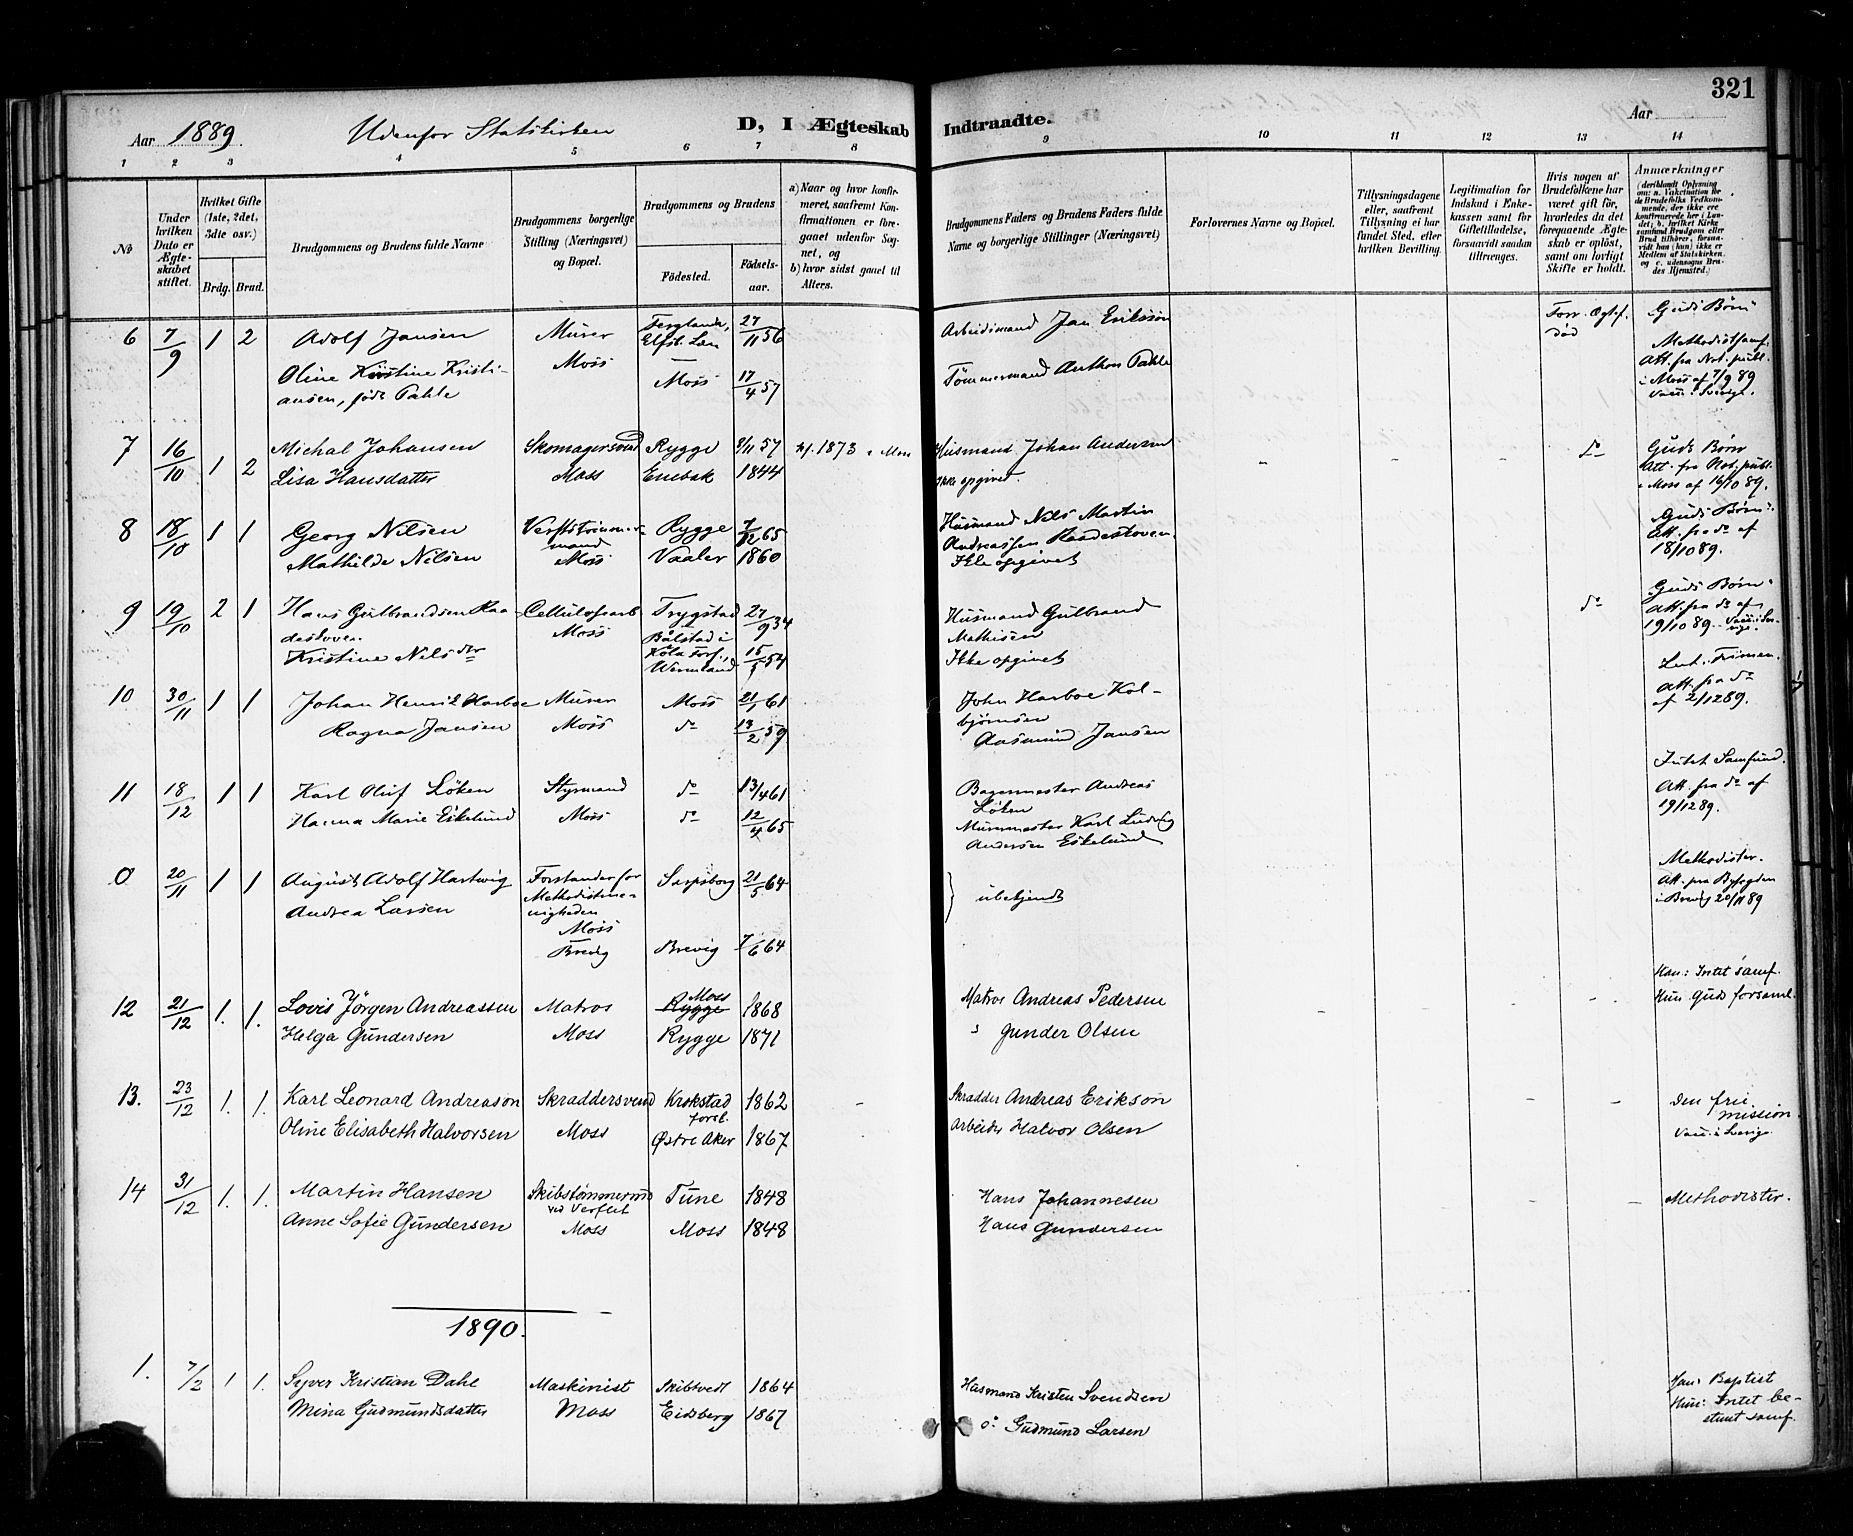 321
Aar 1889
Udenfor Statskirken
D, I Ægteskab Indtraadte.
Aar
1 2 3 4 5 6 7 8 9 10 11 12 13 14
No
Under hvilken Dato er Ægteskabet stiftet.
Hvilket Gifte (1ste, 2det, 3die osv.)
Brdg. Brud.
Brudgommens og Brudens fulde Navne
Brudgommens borgerlige Stilling (Næringsvei) og Bopæl.
Brudgommens og Brudens
Fødested. Fødselsaar.
a) Naar og hvor konfirmeret, saafremt Konfirmationen er foregaaet udenfor Sognet, og
b) hvor sidst gaaet til Alters.
Brudgommens Faders og Brudens Faders fulde Navne og borgerlige Stillinger (Næringsvei)
Forlovernes Navne og Bopæl.
Tillysningsdagene eller, saafremt Tillysning ei har fundet Sted, efter hvilken Bevilling.
Legitimation for Indskud i Enkekassen samt for Giftetilladelse, forsaavidt saadan tiltrænges.
Hvis nogen af Brudefolkene har været gift før, hvorledes da det foregaaende Ægteskab er opløst, samt om lovligt Skifte er holdt.
Anmærkninger
(deriblandt Oplysning om: a. Vakcination for de Brudefolks Vedkommende, der ikke ere konfirmerede her i Landet; b. hvilket Kirkesamfund Brudgom eller Brud tilhører, forsaavidt han (hun) ikke er Medlem af Statskirken, og c. udensogns Brudes Hjemsted.)
6 7/9 1 2 Adolf Jansen Murer 27/11 56 Arbeidsmand Jan Eriksson Forr. Ægtef. død Guds Børn
Elfsb. Len
Oline Kirstine Kristiansen, født Pahle Moss Moss 17/4 57 Tømmermand Anthon Pahle
Methodistsamf.
Att. fra Not. publ. i Moss af 7/9 89
Vacc. i Sverige.
7 16/10 1 2 Michal Johansen Skomagersvend Rygge 8/11 57 kf. 1873 i Moss Husmand Johan Andersen do Guds Børn
Lisa Hansdatter Moss Enebak 1844 Ikke opgivet.
Att. fra Not. publ. i Moss af 16/10 89.
8 18/10 1 1 Georg Nilsen Verftstømmermand Rygge 7/12 65 Husmand Nils Martin Andreassen
Mathilde Nilsen Moss Vaaler 1860 Ikke opgivet
Guds Børn
Att. fra do af 18/10 89.
9 19/10 2 1 Hans Gulbrandsen Raadestoven Cellulosearb Trygstad 27/9 34 Husmand Gulbrand Mathisen do Guds Børn
Moss
Kristine Nilsdtr Bålstad i Köla Fors., Wermland 15/5 54 Ikke opgivet
Att. fra do af 19/10 89. Vacc. i Sverige.
10 30/11 1 1 Johan Henrik Harboe Murer Moss 21/1 61 John Harboe Kolbjørnsen
Ragna Jansen Moss do 13/2 59 Aasmund Jansen
Luth. Frimen.
Att. fra do af 2/12 89.
11 18/12 1 1 Karl Oluf Løken Styrmand do 13/4 61 Bagermester Andreas Løken
Hanna Marie Eskelund Moss do 12/4 65 Murmester Karl Ludvig Andersen Eskelund
Intet Samfund.
Att. fra do af 19/12 89.
0 20/11 1 1 August Adolf Hartwig Forstander for Methodistmenigheden Sarpsborg 21/5 64 ubekjendt
Andrea Larsen Moss
Brevig Brevig 7/6 64
Methodister.
Att. fra Byfogden i Brevig 20/11 89
12 21/12 1. 1. Lovis Jørgen Andreassen Matros Rygge Moss 1868 Matros Andreas Pedersen
Helga Gundersen Moss Rygge 1871 " Gunder Olsen
Han: Intet samf.
Hun: Guds forsaml.
13. 23/12 1. 1. Karl Leonard Andreason Skraddersvend Krokstad fors. 1862 Skradder Andreas Erikson
Oline Elisabeth Halvorsen Moss Østre Aker 1867 Arbeider Halvor Olsen
Den frie mission.
Vacc. i Sverige.
14 31/12 1. 1. Martin Hansen Skibstømmermd ved Verftet Tune 1848 Hans Johannesen Methodister.
Anne Sofie Gundersen Moss Moss 1848 Hans Gundersen
1890.
1. 7/2 1 1. Syver Kristian Dahl Maskinist Skibtvedt 1864 Husmand Kristen Svendsen
Mina Gudmundsdatter Moss Eidsberg 1867 do Gudmund Larsen
Han: Baptist
Hun: Intet bestemt samf.